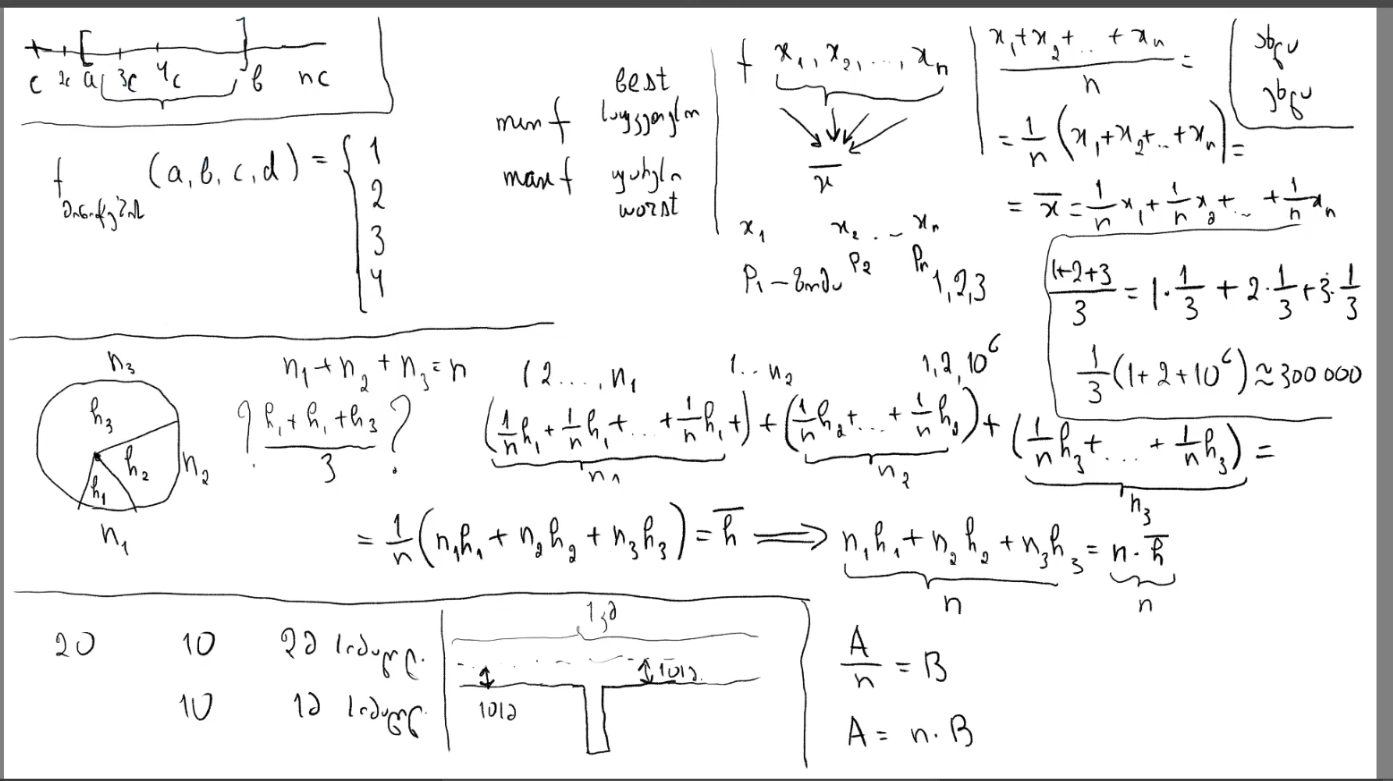 c 2c a 3c 4c b nc
f (a, b, c, d) = { 1
2
3
4
best
min f
max f
worst
f x₁, x₂, ..., xₙ
x̄
x₁ x₂ ... xₙ
P₁ – P₂ Pₙ
1, 2, 3
(x₁+x₂+..+xₙ)/n =
= 1/n (x₁+x₂+..+xₙ) =
= x̄ = 1/n x₁ + 1/n x₂ + .. + 1/n xₙ
(1+2+3)/3 = 1·1/3 + 2·1/3 + 3·1/3
1/3 (1+2+10⁶) ≈ 300 000
n₃
h₃
h₂ n₂
h₁
n₁
n₁ + n₂ + n₃ = n
? (h₁ + h₁ + h₃)/3 ?
1 2 ..., n₁ 1.. n₂ 1, 2, 10⁶
(1/n h₁ + 1/n h₁ + ... + 1/n h₁ +) + (1/n h₂ + ... + 1/n h₂) + (1/n h₃ + ... + 1/n h₃) =
n₁ n₂ n₃
= 1/n (n₁h₁ + n₂h₂ + n₃h₃) = h̄ ⟹ n₁h₁ + n₂h₂ + n₃h₃ = n·h̄
n n
20 10 2მ სიმაღლ.
10 1მ სიმაღლ.
1,3მ
10სმ
A/n = B
A = n·B